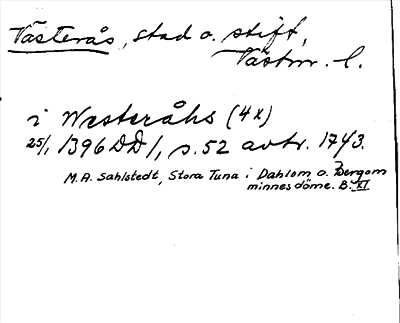 Västerås, stad o. stift,
Västm. l.
i Westeråhs (4x)
25/1 1396 DD 1, s. 52 avtr. 1743.
M.A. Sahlstedt, Stora Tuna i Dahlom o. Bergom
minnesdöme. B. XI.